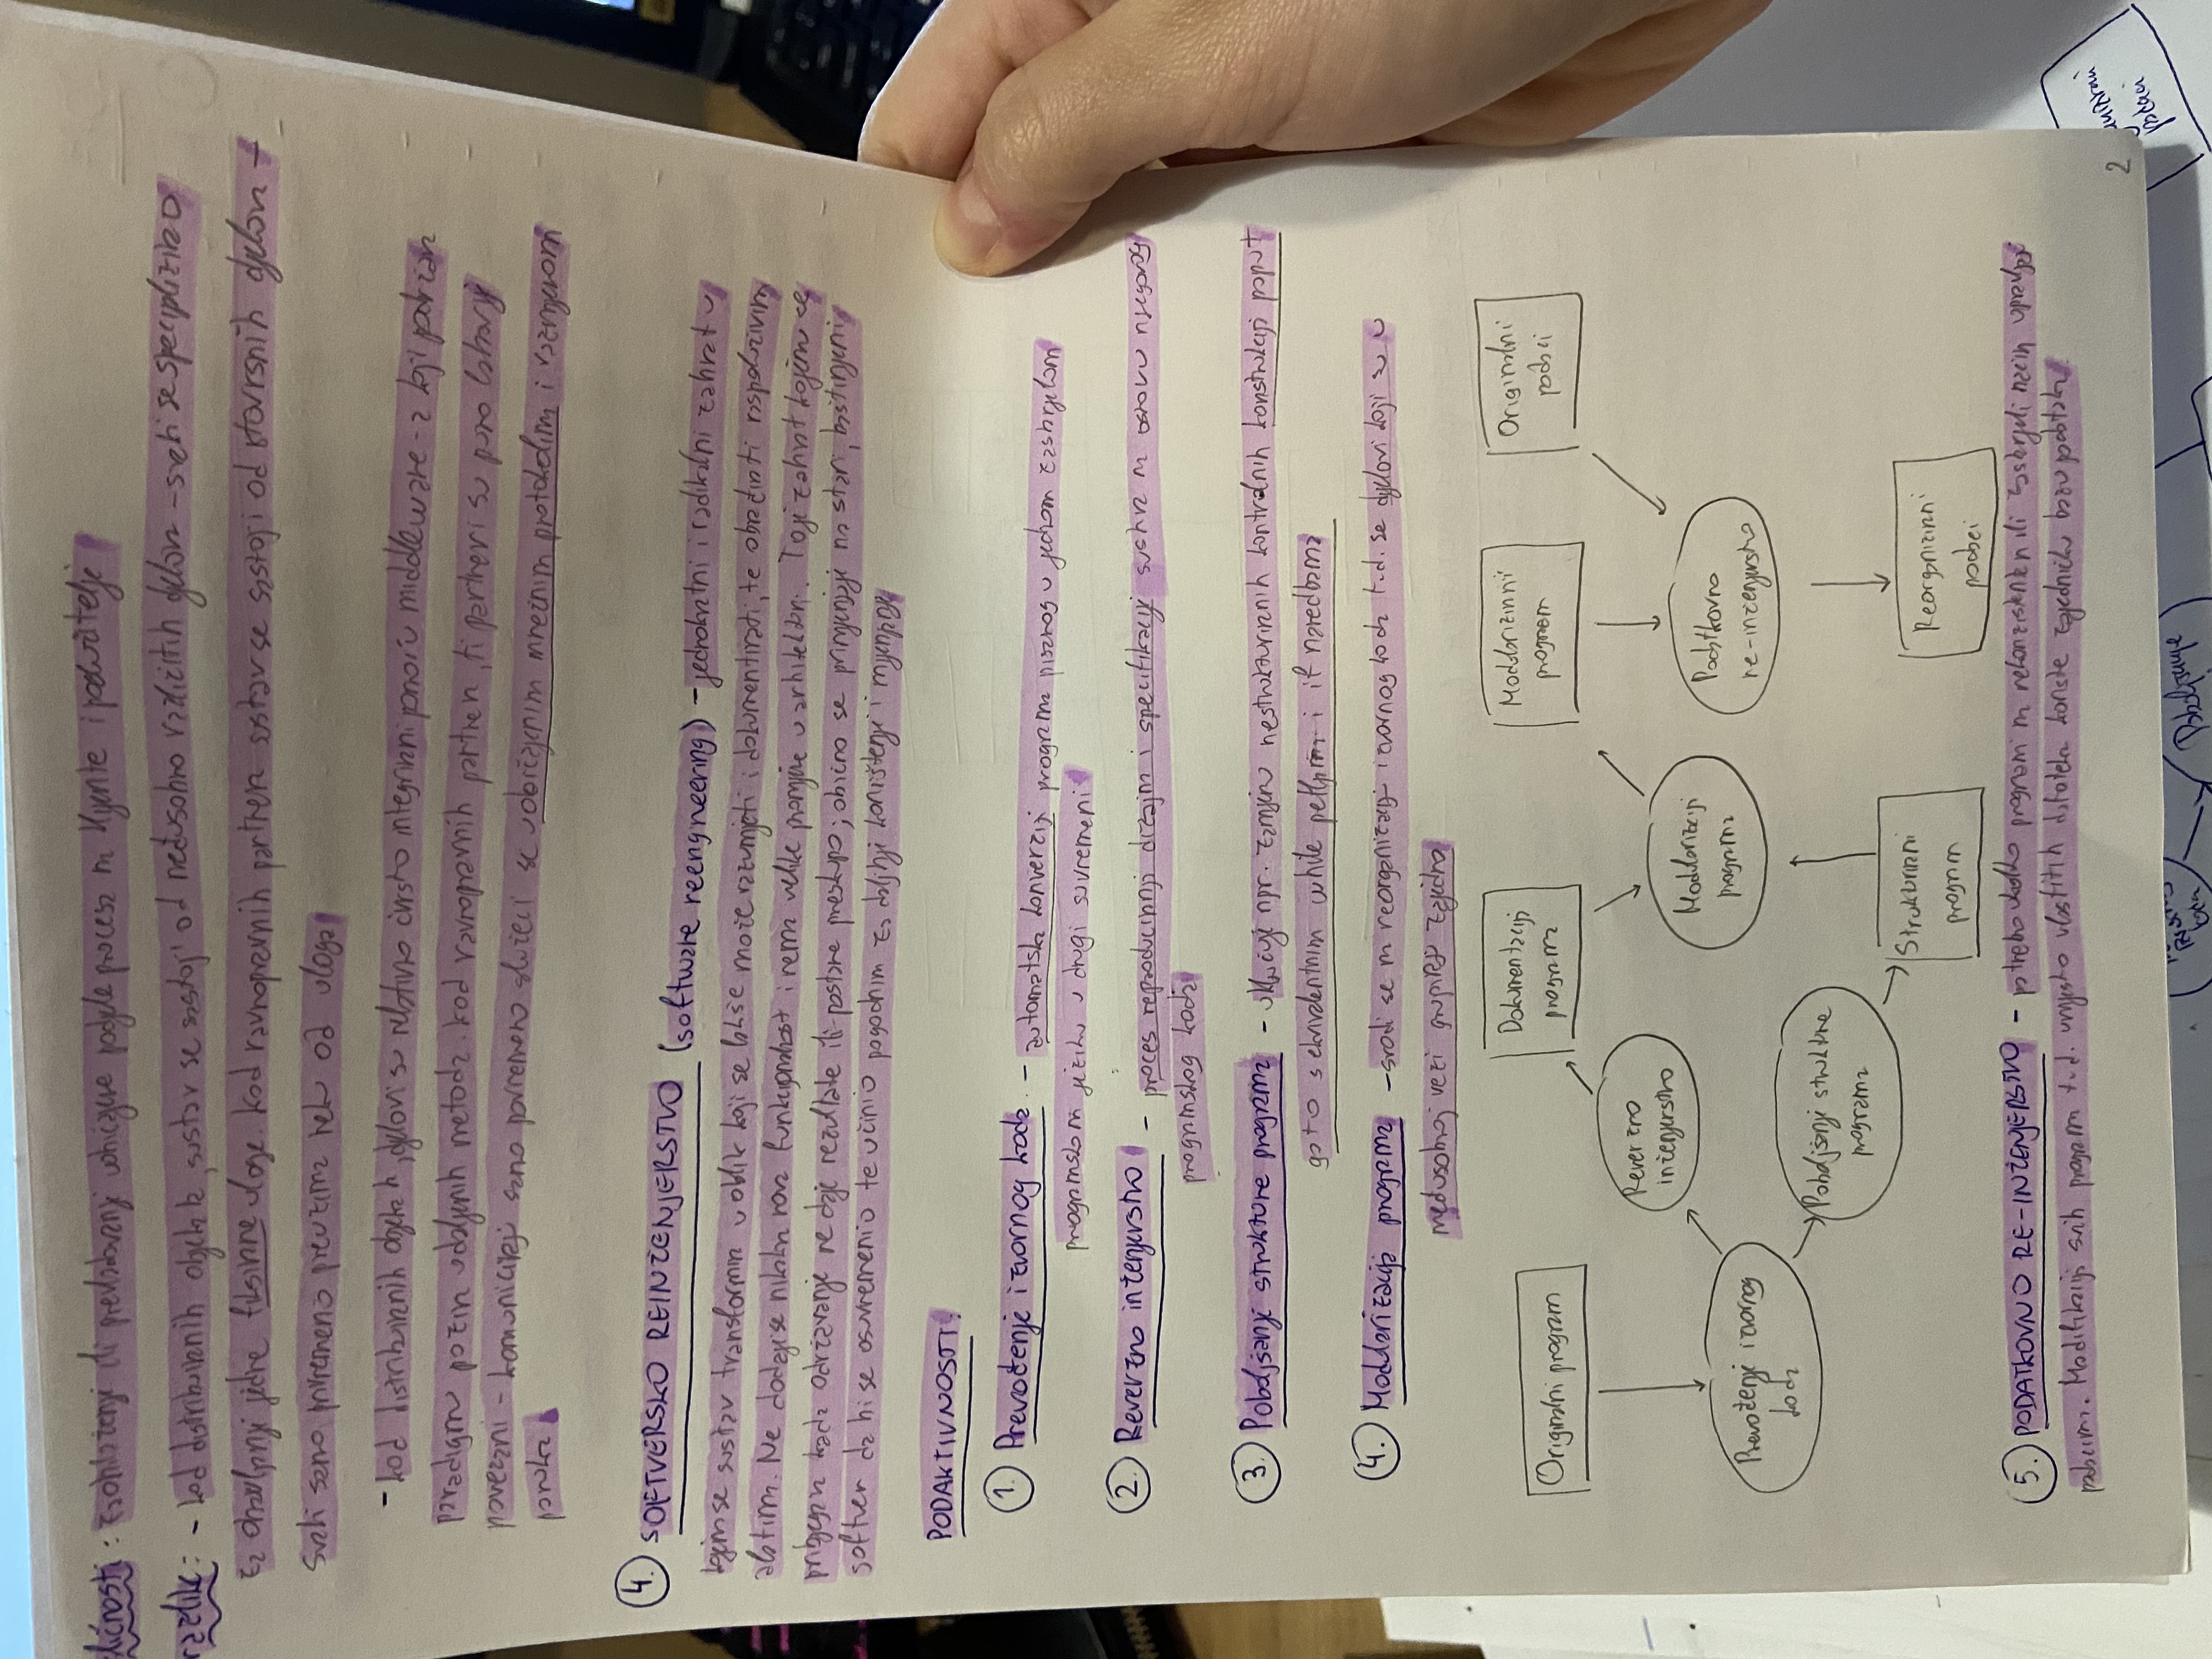 ličnosti: zaobilaženje ili prevladavanje uobičajene podjele procesa na klijente i poslužitelje
razlike: - kod distribuiranih objekata, sustav se sastoji od međusobno različitih djelova - svaki se specijalizirao
za obavljanje jedne fiksirane uloge. Kod ravnopravnih partnera sustav se sastoji od istovrsnih djelova -
svaki samo privremeno preuzima neku od uloga
- kod distribuiranih objekata, djelovi su relativno čvrsto integrirani pomoću middleware-a koji podržava
paradigmu poziva udaljenih metoda. Kod ravnopravnih partnera, ti partneri su puno labavije
povezani - komuniciraju samo povremeno služeći se uobičajenim mrežnim protokolima i razmjenom
poruka
4. SOFTVERSKO REINŽENJERSTVO (software reengneering) - jednokratni i radikalni zahvat u
kojem se sustav transformira u oblik koji se lakše može razumjeti i dokumentirati, te obrađivati raspoloživim
alatima. Ne dodaje se nikakva nova funkcionalnost i nema velike promjene u arhitekturi. To je zahvat kojem se
pribjegava kada održavanje ne daje rezultate ili postane preskupo; obično se primjenjuje na stari, baštinjeni
softver da bi se osuvremenio te učinio pogodnim za daljnje korištenje i mijenjanje
PODAKTIVNOSTI:
1. Prevođenje izvornog koda - automatska konverzija programa pisanog u jednom zastarjelom
programskom jeziku u drugi suvremeni
2. Reverzno inženjerstvo - proces reproduciranja dizajna i specifikacije sustava na osnovu njegovog
programskog koda
3. Poboljšanje strukture programa - uključuje npr. zamjenu nestrukturiranih kontrolnih konstrukcija poput
goto s ekvivalentnim while petljama i if naredbama
4. Modularizacija programa - svodi se na reorganizaciju izvornog koda t.d. se djelovi koji su u
međusobnoj vezi grupiraju zajedno
Originalni program
Dokumentacija
programa
Modularizirani
program
Originalni
podaci
Reverzno
inženjerstvo
Prevođenje izvornog
koda
Modularizacija
programa
Podatkovno
re-inženjerstvo
Poboljšanje strukture
programa
Strukturirani
program
Reorganizirani
podaci
5. PODATKOVNO RE-INŽENJERSTVO - potrebno ukoliko programi na nekonzistentan ili zastarjeli način upravljaju
podacima. Modifikacija svih programa t.d. umjesto vlastitih datoteka koriste zajedničku bazu podataka
2
podaci
koda
Poboljšanje